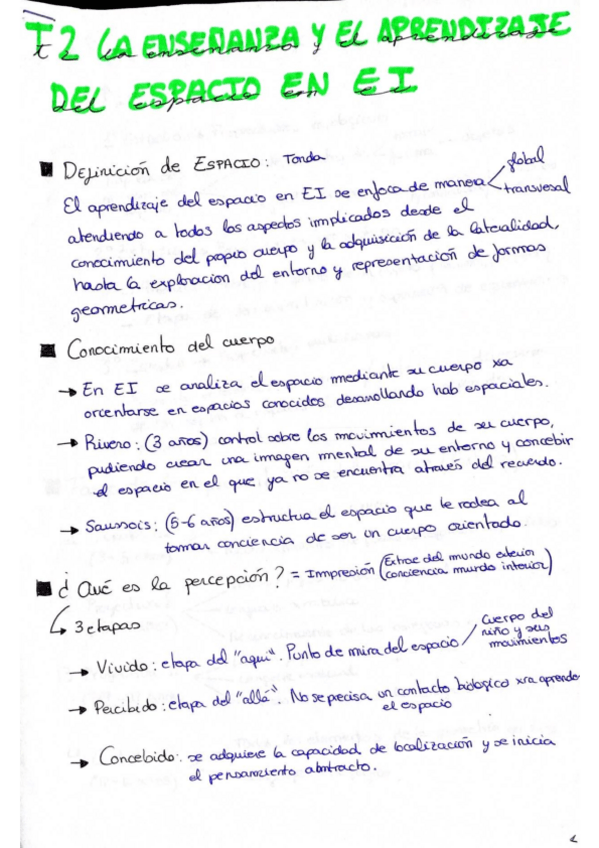 T2 LA ENSEÑANZA Y EL APRENDIZAJE
DEL ESPACIO EN EI.
Definición de ESPACIO: Tonda
El aprendizaje del espacio en EI se enfoca de manera global
transversal
atendiendo a todos los aspectos implicados desde el
conocimiento del propio cuerpo y la adquisición de la lateralidad,
hasta la exploración del entorno y representación de formas
geometricas.
Conocimiento del cuerpo
→ En EI se analiza el espacio mediante su cuerpo xa
orientarse en espacios conocidos desarrollando hab espaciales.
→ Rivero: (3 años) control sobre los movimientos de su cuerpo,
pudiendo crear una imagen mental de su entorno y concebir
el espacio en el que ya no se encuentra através del recuerdo.
→ Saussois: (5-6 años) estructua el espacio que le rodea al
tomar conciencia de ser un cuerpo orientado.
¿Qué es la percepción? = Impresión (Extrae del mundo exterior
conciencia mundo interior)
↳ 3 etapas
→ Vivido: etapa del "aquí". Punto de mira del espacio / Cuerpo del
niño y sus
movimientos
→ Percibido: etapa del "allá". No se precisa un contacto biológico xra aprende
el espacio
→ Concebido: se adquiere la capacidad de localización y se inicia
el pensamiento abstracto.